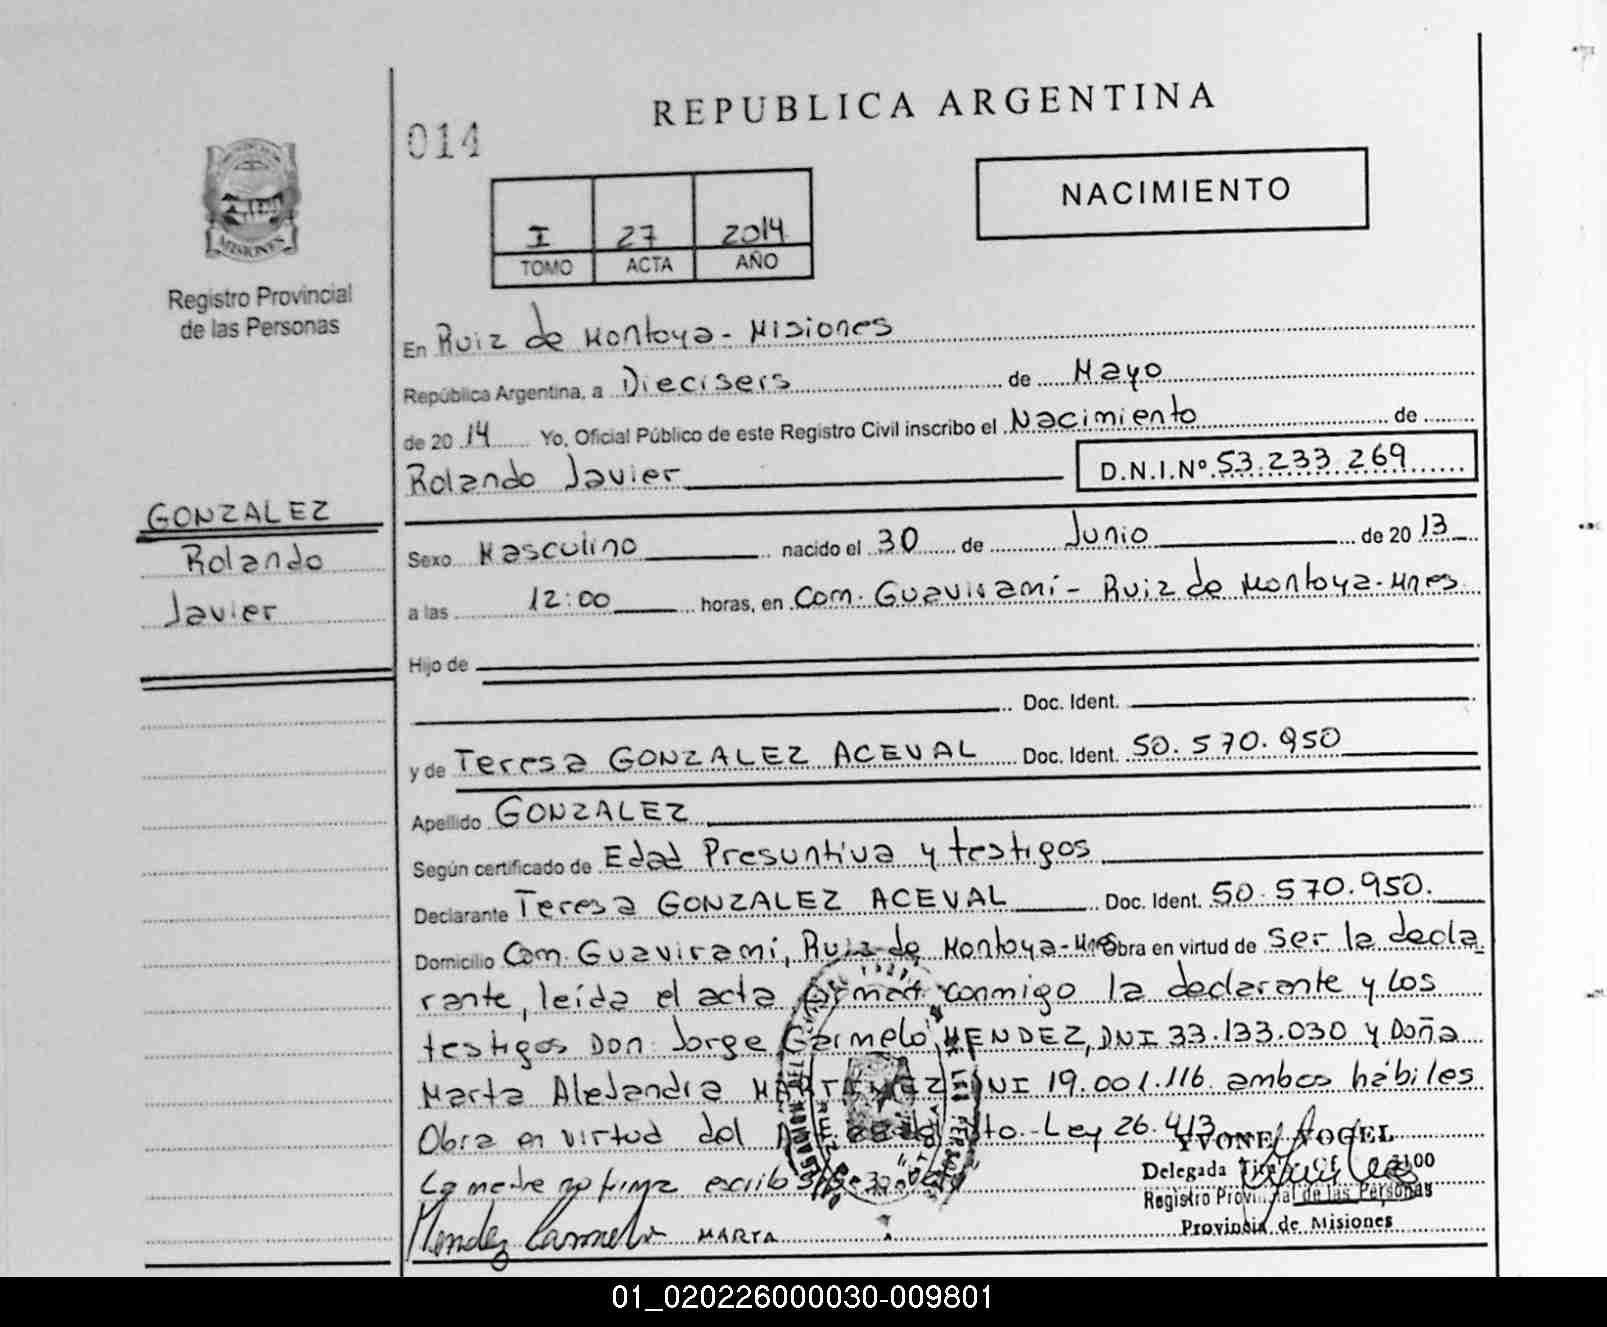 REPUBLICA ARGENTINA
014
NACIMIENTO
I 27 2014
TOMO ACTA AÑO
MISIONES
Registro Provincial
de las Personas
En Ruiz de Montoya - Misiones
República Argentina, a Dieciseis de Mayo
de 20 14 Yo, Oficial Público de este Registro Civil inscribo el Nacimiento de
Rolando Javier D.N.I.Nº 53.233.269
GONZALEZ
Rolando
Javier
Sexo Masculino nacido el 30 de Junio de 20 13
a las 12:00 horas, en Com. Guaviramí - Ruiz de Montoya - Mnes
Hijo de
Doc. Ident.
y de Teresa GONZALEZ ACEVAL Doc. Ident. 50.570.950
Apellido GONZALEZ
Según certificado de Edad Presuntiva y testigos
Declarante Teresa GONZALEZ ACEVAL Doc. Ident. 50.570.950.
Domicilio Com. Guaviramí, Ruiz de Montoya - Mnes Obra en virtud de ser la decla
rante, leída el acta conmigo la declarante y los
testigos Don Jorge Carmelo MENDEZ, DNI 33.133.030 y Doña
Marta Alejandra MARTINEZ DNI 19.001.116 ambos hábiles
Obra en virtud del Ley 26.413
YVONE VOGEL
Delegada
La madre no firma
Registro Provincial de las Personas
Provincia de Misiones
Mendez Carmelo MARTA
01_020226000030-009801